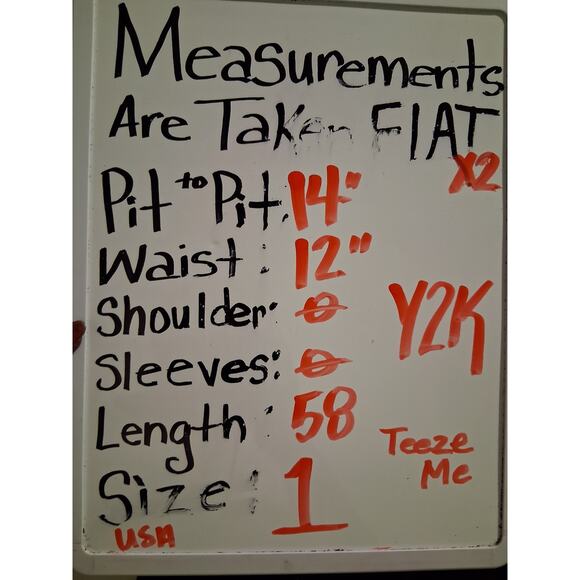 Measurements
Are Taken FlAT
X2
Pit to Pit: 14"
Waist: 12"
Shoulder: 0
Y2K
Sleeves: 0
Length: 58
Teeze
Me
Size: 1
USA